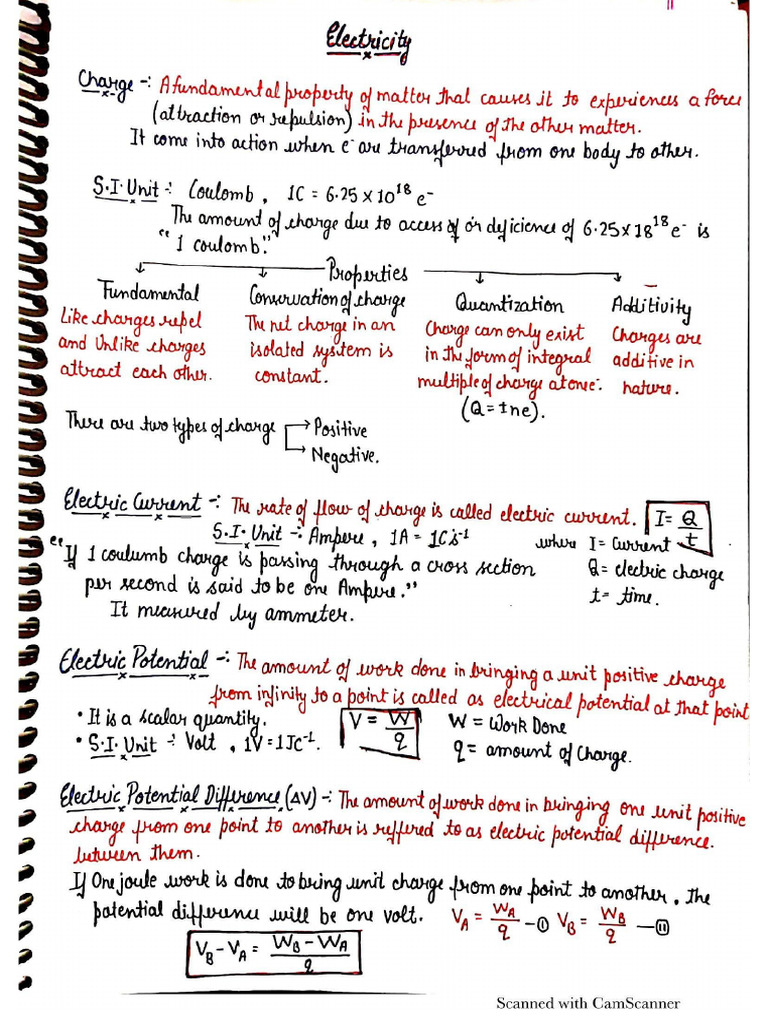 Electricity
Charge -: A fundamental property of matter that causes it to experiences a force
(attraction or repulsion) in the presence of the other matter.
It come into action when e⁻ are transferred from one body to other.
S.I. Unit -: Coulomb , 1C = 6.25 x 10¹⁸ e⁻
The amount of charge due to access of or deficience of 6.25x18¹⁸ e⁻ is
“1 coulomb.”
Properties
Fundamental Conservation of charge Quantization Additivity
Like charges repel The net charge in an Charge can only exist Charges are
and Unlike charges isolated system is in the form of integral additive in
attract each other. constant. multiple of charge at one⁻. nature.
(Q = ±ne).
There are two types of charge → Positive
→ Negative.
Electric Current -: The rate of flow of charge is called electric current. I = Q/t
S.I. Unit -: Ampere , 1A = 1Cs⁻¹ where I = Current
“If 1 coulumb charge is passing through a cross section Q = electric charge
per second is said to be one Ampere.” t = time.
It measured by ammeter.
Electric Potential -: The amount of work done in bringing a unit positive charge
from infinity to a point is called as electrical potential at that point
• It is a scalar quantity. V = W/q W = Work Done
• S.I. Unit -: Volt , 1V = 1JC⁻¹. q = amount of Charge.
Electric Potential Difference (ΔV) -: The amount of work done in bringing one unit positive
charge from one point to another is reffered to as electric potential difference
between them.
If One joule work is done to bring unit charge from one point to another, the
potential difference will be one volt. V_A = W_A/q —① V_B = W_B/q —⑪
V_B - V_A = W_B - W_A/q
Scanned with CamScanner